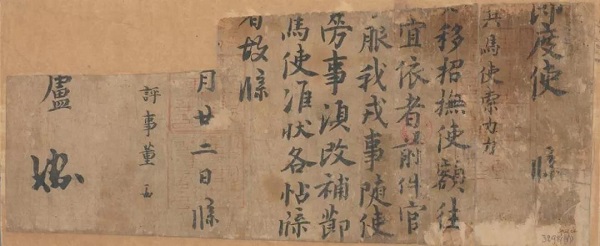 度使 牒
共馬使索力力
移招撫使額往
宜依者前件官
服我戎事隨使
勞事須改補節
馬使准狀各帖牒
者故牒
月廿二日牒
評事董
盧